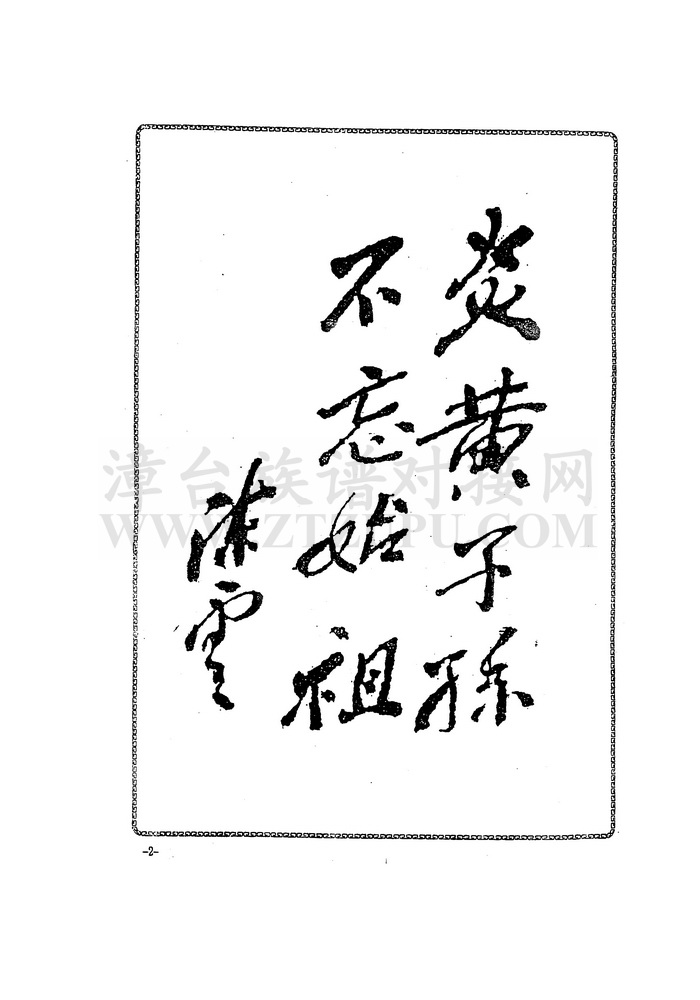 炎黄子孫
不忘始祖
陳雲
漳台族谱对接网
WWW.ZTZUPU.COM
-2-